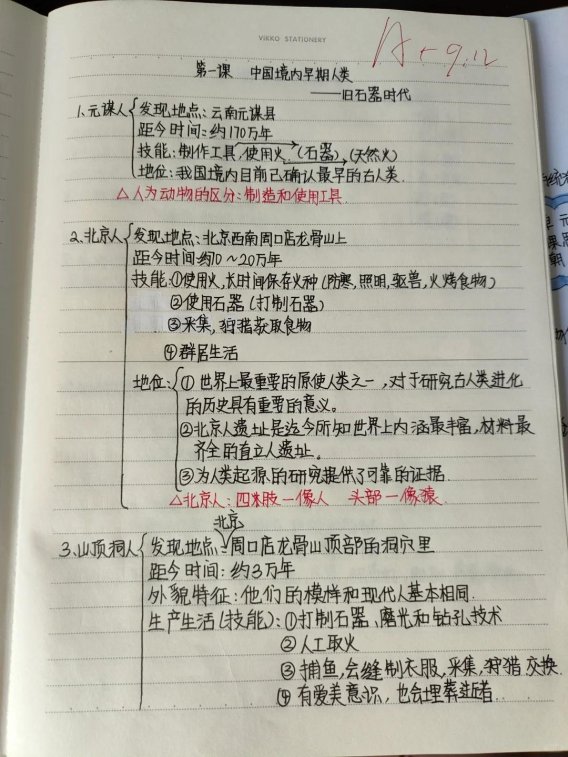 VIKKO STATIONERY
A+ 9.12
第一课 中国境内早期人类
——旧石器时代
1.元谋人 发现地点:云南元谋县
距今时间:约170万年
技能:制作工具,使用火 (石器) (天然火)
地位:我国境内目前已确认最早的古人类.
△人为动物的区分:制造和使用工具.
2.北京人 发现地点:北京西南周口店龙骨山上
距今时间:约70~20万年
技能:①使用火,长时间保存火种(防寒,照明,驱兽,火烤食物)
②使用石器(打制石器)
③采集,狩猎获取食物
④群居生活
地位:①世界上最重要的原使人类之一,对于研究古人类进化
的历史具有重要的意义。
②北京人遗址是迄今所知世界上内涵最丰富,材料最
齐全的直立人遗址。
③为人类起源的研究提供了可靠的证据.
△北京人:四肢—像人 头部—像猿.
北京
3.山顶洞人 发现地点:周口店龙骨山顶部的洞穴里
距今时间:约3万年
外貌特征:他们的模样和现代人基本相同.
生产生活(技能):①打制石器、磨光和钻孔技术
②人工取火
③捕鱼,会缝制衣服,采集,狩猎,交换.
④有爱美意识,也会埋葬逝者.